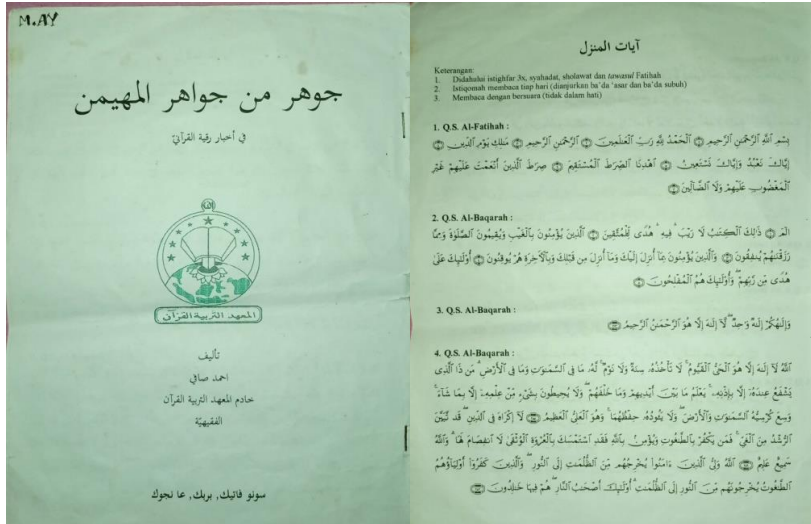 M.AY
جوهر من جواهر المهيمن
في أخبار رقية القرآني
المعهد التربية القرآن
تأليف
احمد صافي
خادم المعهد التربية القرآن
الفقيهية
سونو فاتيك, بربك, عا نجوك
آيات المنزل
Keterangan:
1. Didahului istighfar 3x, syahadat, sholawat dan tawasul Fatihah
2. Istiqomah membaca tiap hari (dianjurkan ba'da 'asar dan ba'da subuh)
3. Membaca dengan bersuara (tidak dalam hati)
1. Q.S. Al-Fatihah :
بِسْمِ اللَّهِ الرَّحْمَٰنِ الرَّحِيمِ ۝ الْحَمْدُ لِلَّهِ رَبِّ الْعَٰلَمِينَ ۝ الرَّحْمَٰنِ الرَّحِيمِ ۝ مَٰلِكِ يَوْمِ الدِّينِ ۝
إِيَّاكَ نَعْبُدُ وَإِيَّاكَ نَسْتَعِينُ ۝ اهْدِنَا الصِّرَٰطَ الْمُسْتَقِيمَ ۝ صِرَٰطَ الَّذِينَ أَنْعَمْتَ عَلَيْهِمْ غَيْرِ
الْمَغْضُوبِ عَلَيْهِمْ وَلَا الضَّآلِّينَ ۝
2. Q.S. Al-Baqarah :
الٓمٓ ۝ ذَٰلِكَ الْكِتَٰبُ لَا رَيْبَ ۛ فِيهِ ۛ هُدًى لِّلْمُتَّقِينَ ۝ الَّذِينَ يُؤْمِنُونَ بِالْغَيْبِ وَيُقِيمُونَ الصَّلَوٰةَ وَمِمَّا
رَزَقْنَٰهُمْ يُنفِقُونَ ۝ وَالَّذِينَ يُؤْمِنُونَ بِمَآ أُنزِلَ إِلَيْكَ وَمَآ أُنزِلَ مِن قَبْلِكَ وَبِالْءَاخِرَةِ هُمْ يُوقِنُونَ ۝ أُو۟لَٰٓئِكَ عَلَىٰ
هُدًى مِّن رَّبِّهِمْ ۖ وَأُو۟لَٰٓئِكَ هُمُ الْمُفْلِحُونَ ۝
3. Q.S. Al-Baqarah :
وَإِلَٰهُكُمْ إِلَٰهٌ وَٰحِدٌ ۖ لَّآ إِلَٰهَ إِلَّا هُوَ الرَّحْمَٰنُ الرَّحِيمُ ۝
4. Q.S. Al-Baqarah :
اللَّهُ لَآ إِلَٰهَ إِلَّا هُوَ الْحَىُّ الْقَيُّومُ ۚ لَا تَأْخُذُهُۥ سِنَةٌ وَلَا نَوْمٌ ۚ لَّهُۥ مَا فِى السَّمَٰوَٰتِ وَمَا فِى الْأَرْضِ ۗ مَن ذَا الَّذِى
يَشْفَعُ عِندَهُۥٓ إِلَّا بِإِذْنِهِۦ ۚ يَعْلَمُ مَا بَيْنَ أَيْدِيهِمْ وَمَا خَلْفَهُمْ ۖ وَلَا يُحِيطُونَ بِشَىْءٍ مِّنْ عِلْمِهِۦٓ إِلَّا بِمَا شَآءَ ۚ
وَسِعَ كُرْسِيُّهُ السَّمَٰوَٰتِ وَالْأَرْضَ ۖ وَلَا يَـُٔودُهُۥ حِفْظُهُمَا ۚ وَهُوَ الْعَلِىُّ الْعَظِيمُ ۝ لَآ إِكْرَاهَ فِى الدِّينِ ۖ قَد تَّبَيَّنَ
الرُّشْدُ مِنَ الْغَىِّ ۚ فَمَن يَكْفُرْ بِالطَّٰغُوتِ وَيُؤْمِنۢ بِاللَّهِ فَقَدِ اسْتَمْسَكَ بِالْعُرْوَةِ الْوُثْقَىٰ لَا انفِصَامَ لَهَا ۗ وَاللَّهُ
سَمِيعٌ عَلِيمٌ ۝ اللَّهُ وَلِىُّ الَّذِينَ ءَامَنُوا۟ يُخْرِجُهُم مِّنَ الظُّلُمَٰتِ إِلَى النُّورِ ۖ وَالَّذِينَ كَفَرُوٓا۟ أَوْلِيَآؤُهُمُ
الطَّٰغُوتُ يُخْرِجُونَهُم مِّنَ النُّورِ إِلَى الظُّلُمَٰتِ ۗ أُو۟لَٰٓئِكَ أَصْحَٰبُ النَّارِ ۖ هُمْ فِيهَا خَٰلِدُونَ ۝